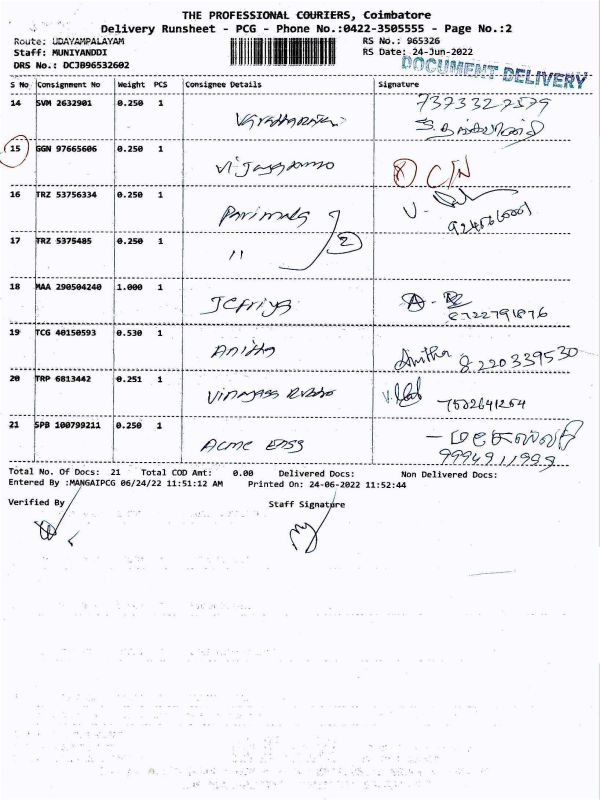 THE PROFESSIONAL COURIERS, Coimbatore
Delivery Runsheet - PCG - Phone No.:0422-3505555 - Page No.:2
Route: UDAYAMPALAYAM RS No.: 965326
Staff: MUNIYANDDI RS Date: 24-Jun-2022
DRS No.: DCJB96532602 DOCUMENT DELIVERY
S No Consignment No Weight PCS Consignee Details Signature
14 SVM 2632901 0.250 1
15 GGN 97665606 0.250 1 C/N
16 TRZ 53756334 0.250 1 Parimala 2
17 TRZ 5375485 0.250 1 "
18 MAA 290504240 1.000 1 Jefriya
8722791876
19 TCG 40150593 0.530 1 Anitha Anitha 8220339530
20 TRP 6813442 0.251 1 7502641264
21 SPB 100799211 0.250 1 Acme Engg
9994911999
Total No. Of Docs: 21 Total COD Amt: 0.00 Delivered Docs: Non Delivered Docs:
Entered By :MANGAIPCG 06/24/22 11:51:12 AM Printed On: 24-06-2022 11:52:44
Verified By Staff Signature